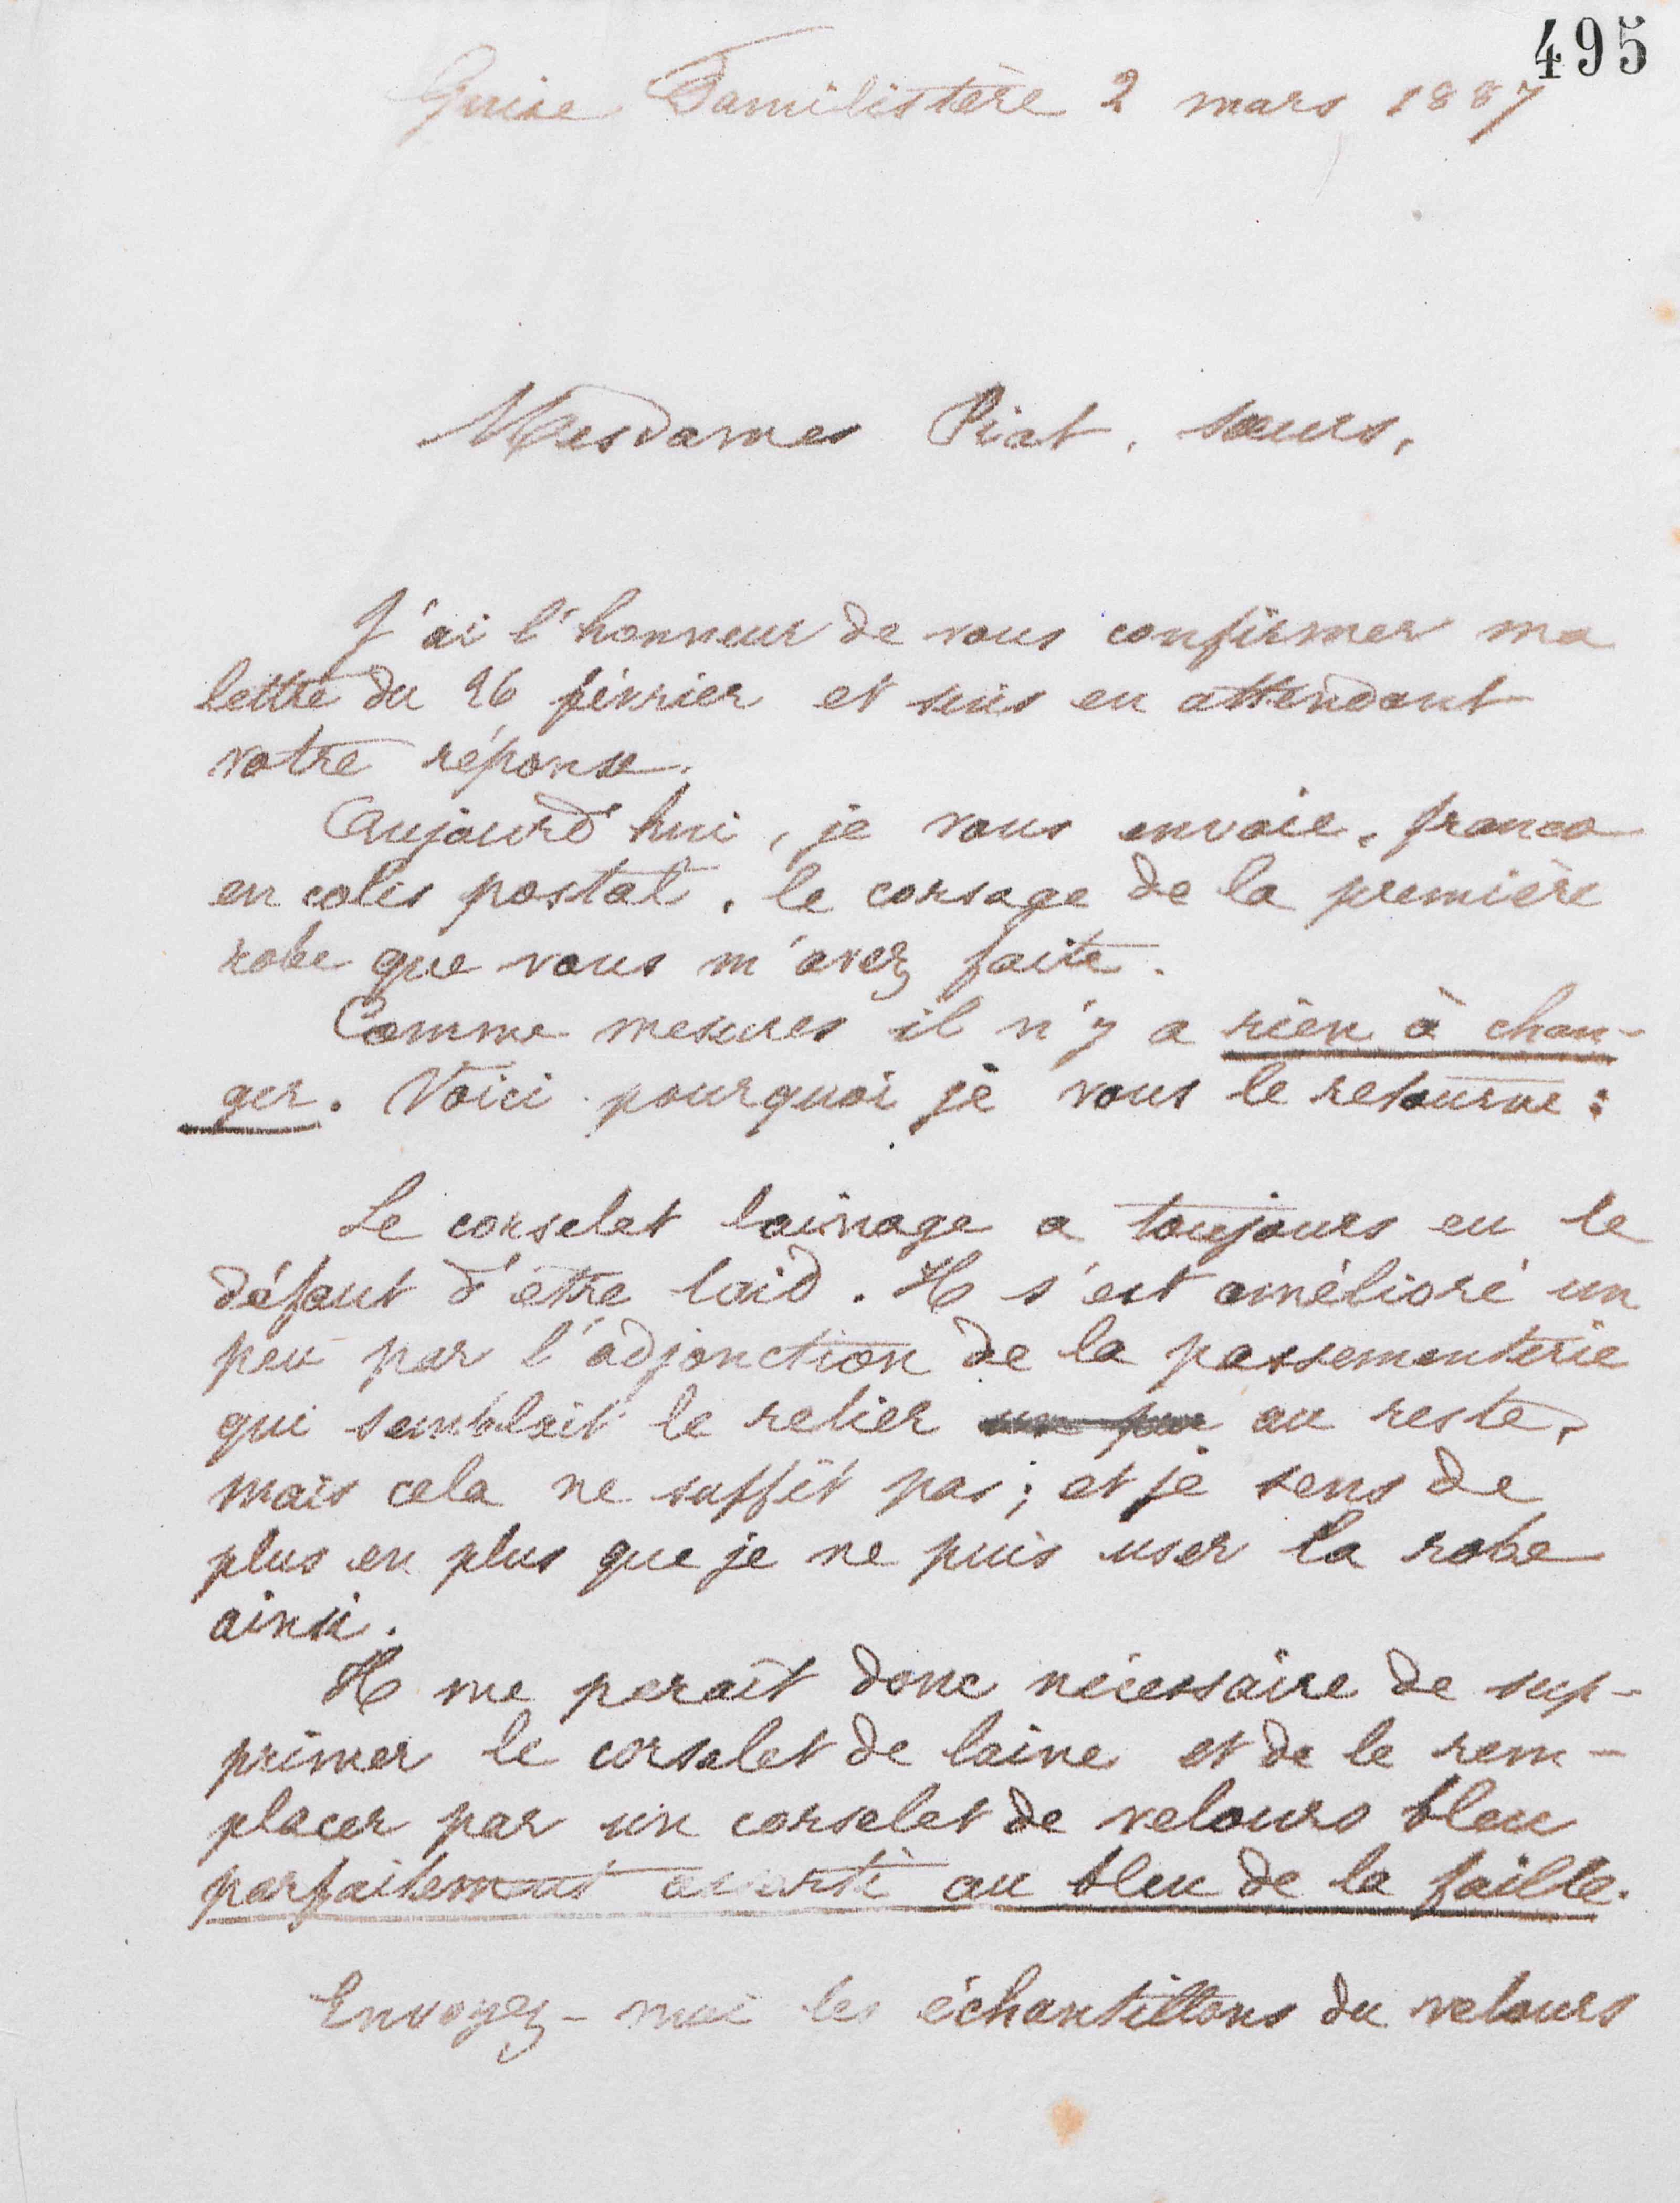 495
Guise Familistère 2 mars 1887
Mesdames Piat, sœurs,
J'ai l'honneur de vous confirmer ma
lettre du 26 février et suis en attendant
votre réponse.
Aujourd'hui, je vous envoie, franco
en colis postal, le corsage de la première
robe que vous m'avez faite.
Comme mesures il n'y a rien à chan-
ger. Voici pourquoi je vous le retourne :
Le corselet lainage a toujours eu le
défaut d'être laid. Il s'est amélioré un
peu par l'adjonction de la passementerie
qui semblait le relier un peu au reste,
mais cela ne suffit pas ; et je sens de
plus en plus que je ne puis user la robe
ainsi.
Il me paraît donc nécessaire de sup-
primer le corselet de laine et de le rem-
placer par un corselet de velours bleu
parfaitement assorti au bleu de la faille.
Envoyez-moi les échantillons du velours